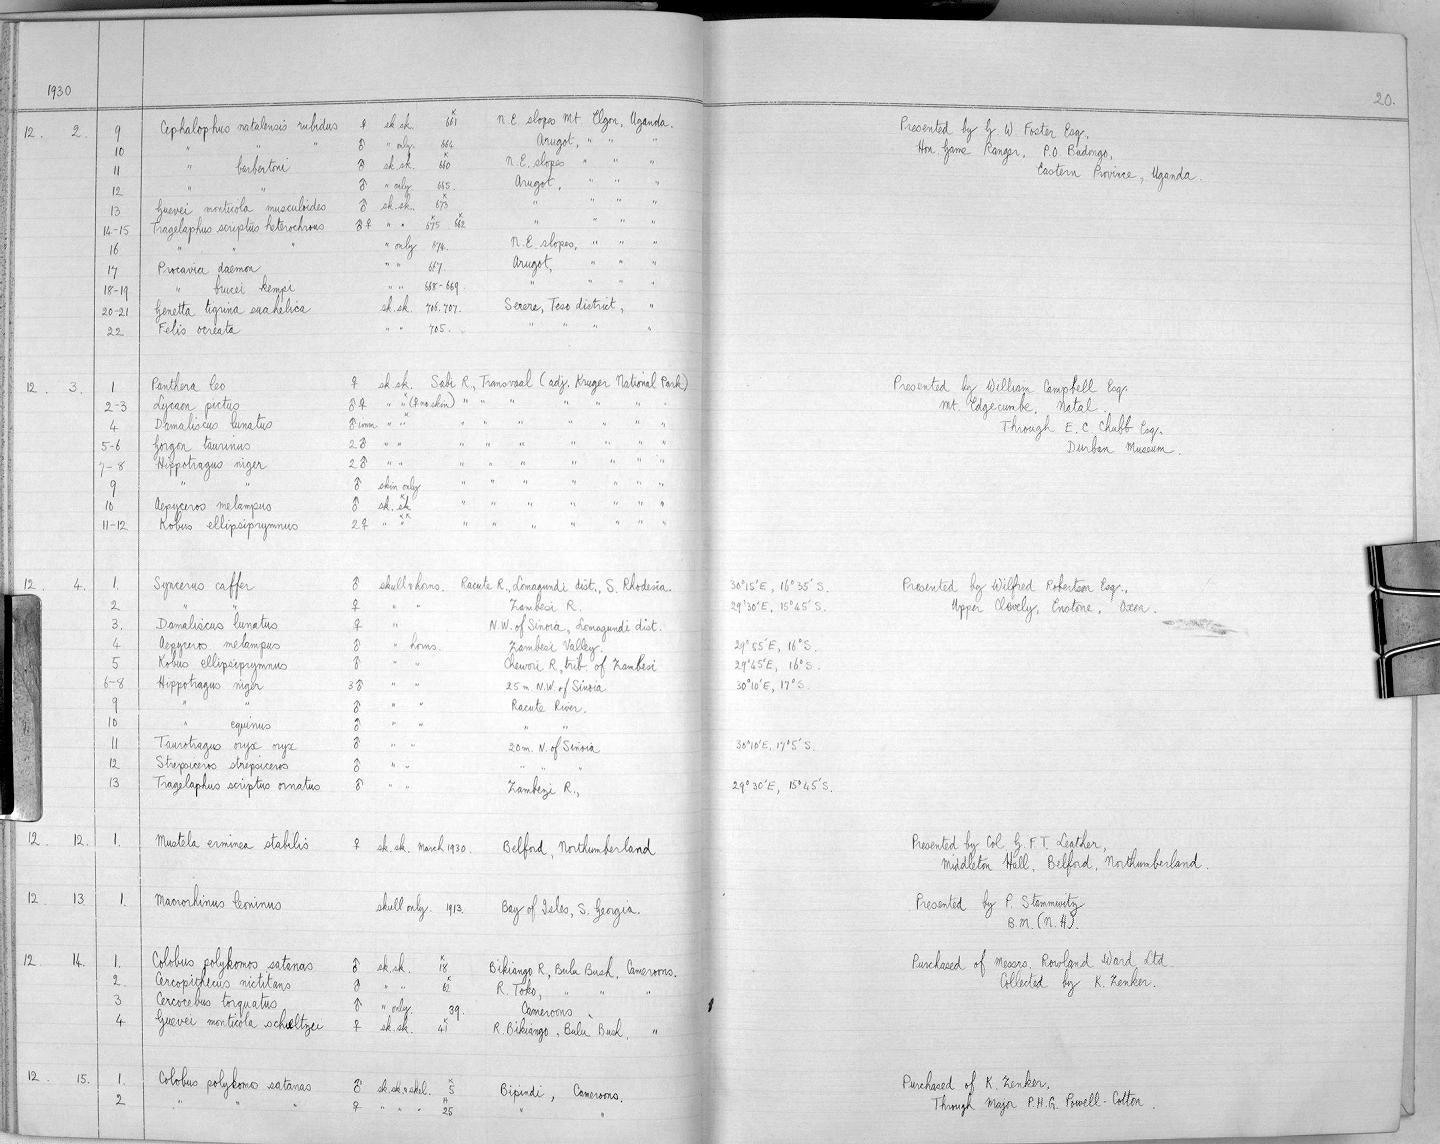 1930
20.
12. 2. 9 Cephalophus natalensis rubidus ♀ sk.sk. 661 N.E. slopes Mt Elgon, Uganda. Presented by G. W. Foster Esq.,
10 " " " ♂ " only 664 Arugot, " " " Hon Game Ranger, P.O. Budongo,
11 " harbertoni ♂ sk.sk. 660 N.E. slopes " " " Eastern Province, Uganda.
12 " " ♂ " only 665. Arugot, " " "
13 Guevei monticola musculoides ♂ sk.sk. 673 " " " "
14-15 Tragelaphus scriptus heterochrous ♂♀ " " 675 662 " " " "
16 " " " " only 674. N.E. slopes, " " "
17 Procavia daemon " " 667. Arugot, " " "
18-19 " brucei kempi " " 668-669. " " " "
20-21 Genetta tigrina suahelica sk.sk. 706.707. Serere, Teso district, "
22 Felis ocreata " " 705. " " " "
12. 3. 1 Panthera leo ♀ sk.sk. Sabi R., Transvaal (adj. Kruger National Park) Presented by William Campbell Esq.
2-3 Lycaon pictus ♂♀ " " (♀ no skin) " " " " " " Mt. Edgecumbe, Natal.
4 Damaliscus lunatus ♂ imm. " " " " " " " " Through E. C. Chubb Esq.
5-6 Gorgon taurinus 2♂ " " " " " " " " " Durban Museum.
7-8 Hippotragus niger 2♂ " " " " " " " " "
9 " " ♂ skin only " " " " " " "
10 Aepyceros melampus ♂ sk. sk " " " " " " "
11-12 Kobus ellipsiprymnus 2♀ " " " " " " " " "
12. 4. 1. Syncerus caffer ♂ skull & horns. Racute R., Lomagundi dist., S. Rhodesia. 30°15'E, 16°35'S. Presented by Wilfred Robertson Esq.,
2 " " ♀ " " Zambesi R. 29°30'E, 15°45'S. Upper Enstone, Oxon.
3. Damaliscus lunatus ♀ " N.W. of Sinoia, Lomagundi dist.
4 Aepyceros melampus ♂ " horns. Zambesi Valley. 29°55'E, 16°S.
5 Kobus ellipsiprymnus ♂ " " Chewori R., trib. of Zambesi 29°45'E, 16°S.
6-8 Hippotragus niger 3♂ " " 25 m. N.W. of Sinoia 30°10'E, 17°S.
9 " " ♂ " " Racute River.
10 " equinus ♂ " " " "
11 Taurotragus oryx oryx ♂ " " 20 m. N. of Sinoia 30°10'E, 17°5'S.
12 Strepsiceros strepsiceros ♂ " " " " "
13 Tragelaphus scriptus ornatus ♂ " " Zambezi R., 29°30'E, 15°45'S.
12. 12. 1. Mustela erminea stabilis ♀ sk.sk. March 1930. Belford, Northumberland Presented by Col. G. F. T. Leather,
Middleton Hall, Belford, Northumberland.
12. 13 1. Macrorhinus leoninus skull only. 1913. Bay of Isles, S. Georgia. Presented by P. Stammwitz
B.M. (N.H).
12. 14. 1. Colobus polykomos satanas ♂ sk.sk. 18 Bikiango R, Bulu Bush, Cameroons. Purchased of Messrs. Rowland Ward Ltd.
2. Cercopithecus nictitans ♂ " " 62 R. Toko, " " " Collected by K. Zenker.
3 Cercocebus torquatus ♂ " only. 39. Cameroons.
4 Guevei monticola schultzei ♀ sk.sk. 41 R. Bikiango, Bulu Bush, "
12. 15. 1. Colobus polykomos satanas ♂ sk.sk. & skel. 5 Bipindi, Cameroons. Purchased of K. Zenker,
2 " " " ♀ " " " 25 " " Through Major P.H.G. Powell-Cotton.